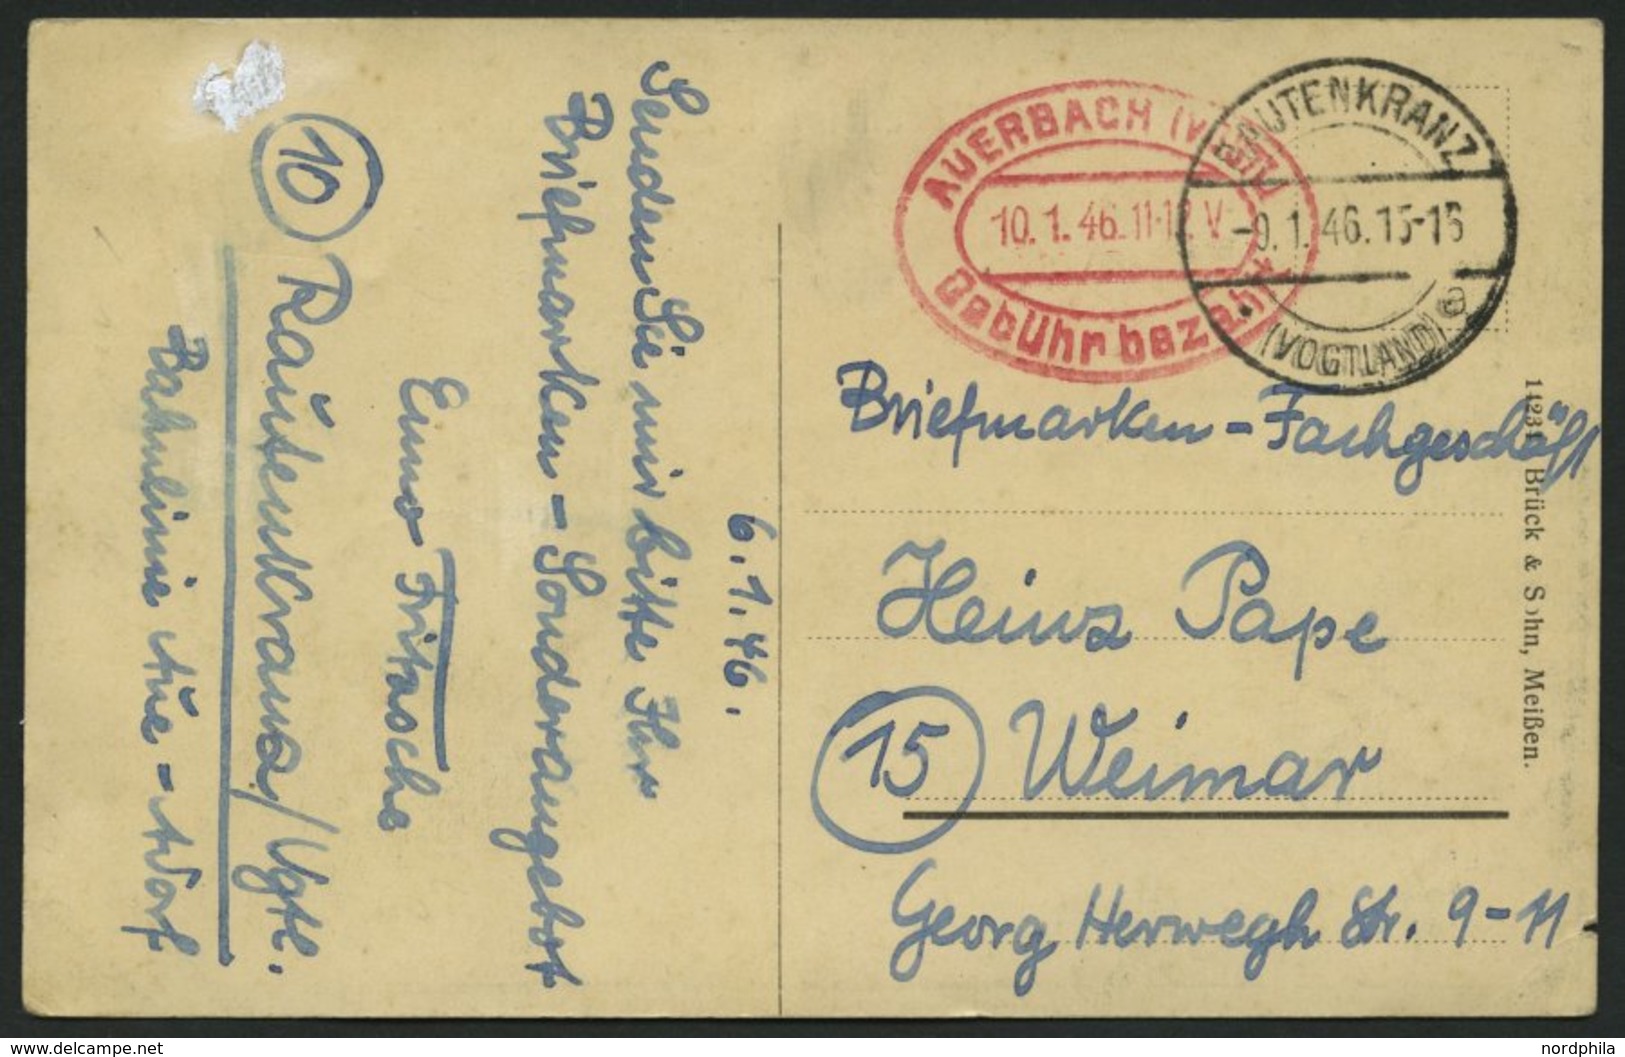 6.1.46.
Senden Sie mir bitte Ihr
Briefmarken-Sonderangebot
Enno Fritzsche
10 Rautenkranz/Vgtl.
Bahnlinie Aue-Adorf
AUERBACH (VOGTL)
10.1.46.11-12.V
Gebühr bezahlt
RAUTENKRANZ
-9.1.46.15-16
(VOGTLAND) a
Briefmarken-Fachgeschäft
Heinz Pape
15 Weimar
Georg Herwegh Str. 9-11
Brück & Sohn, Meißen.
www.delcampe.net
nordphila